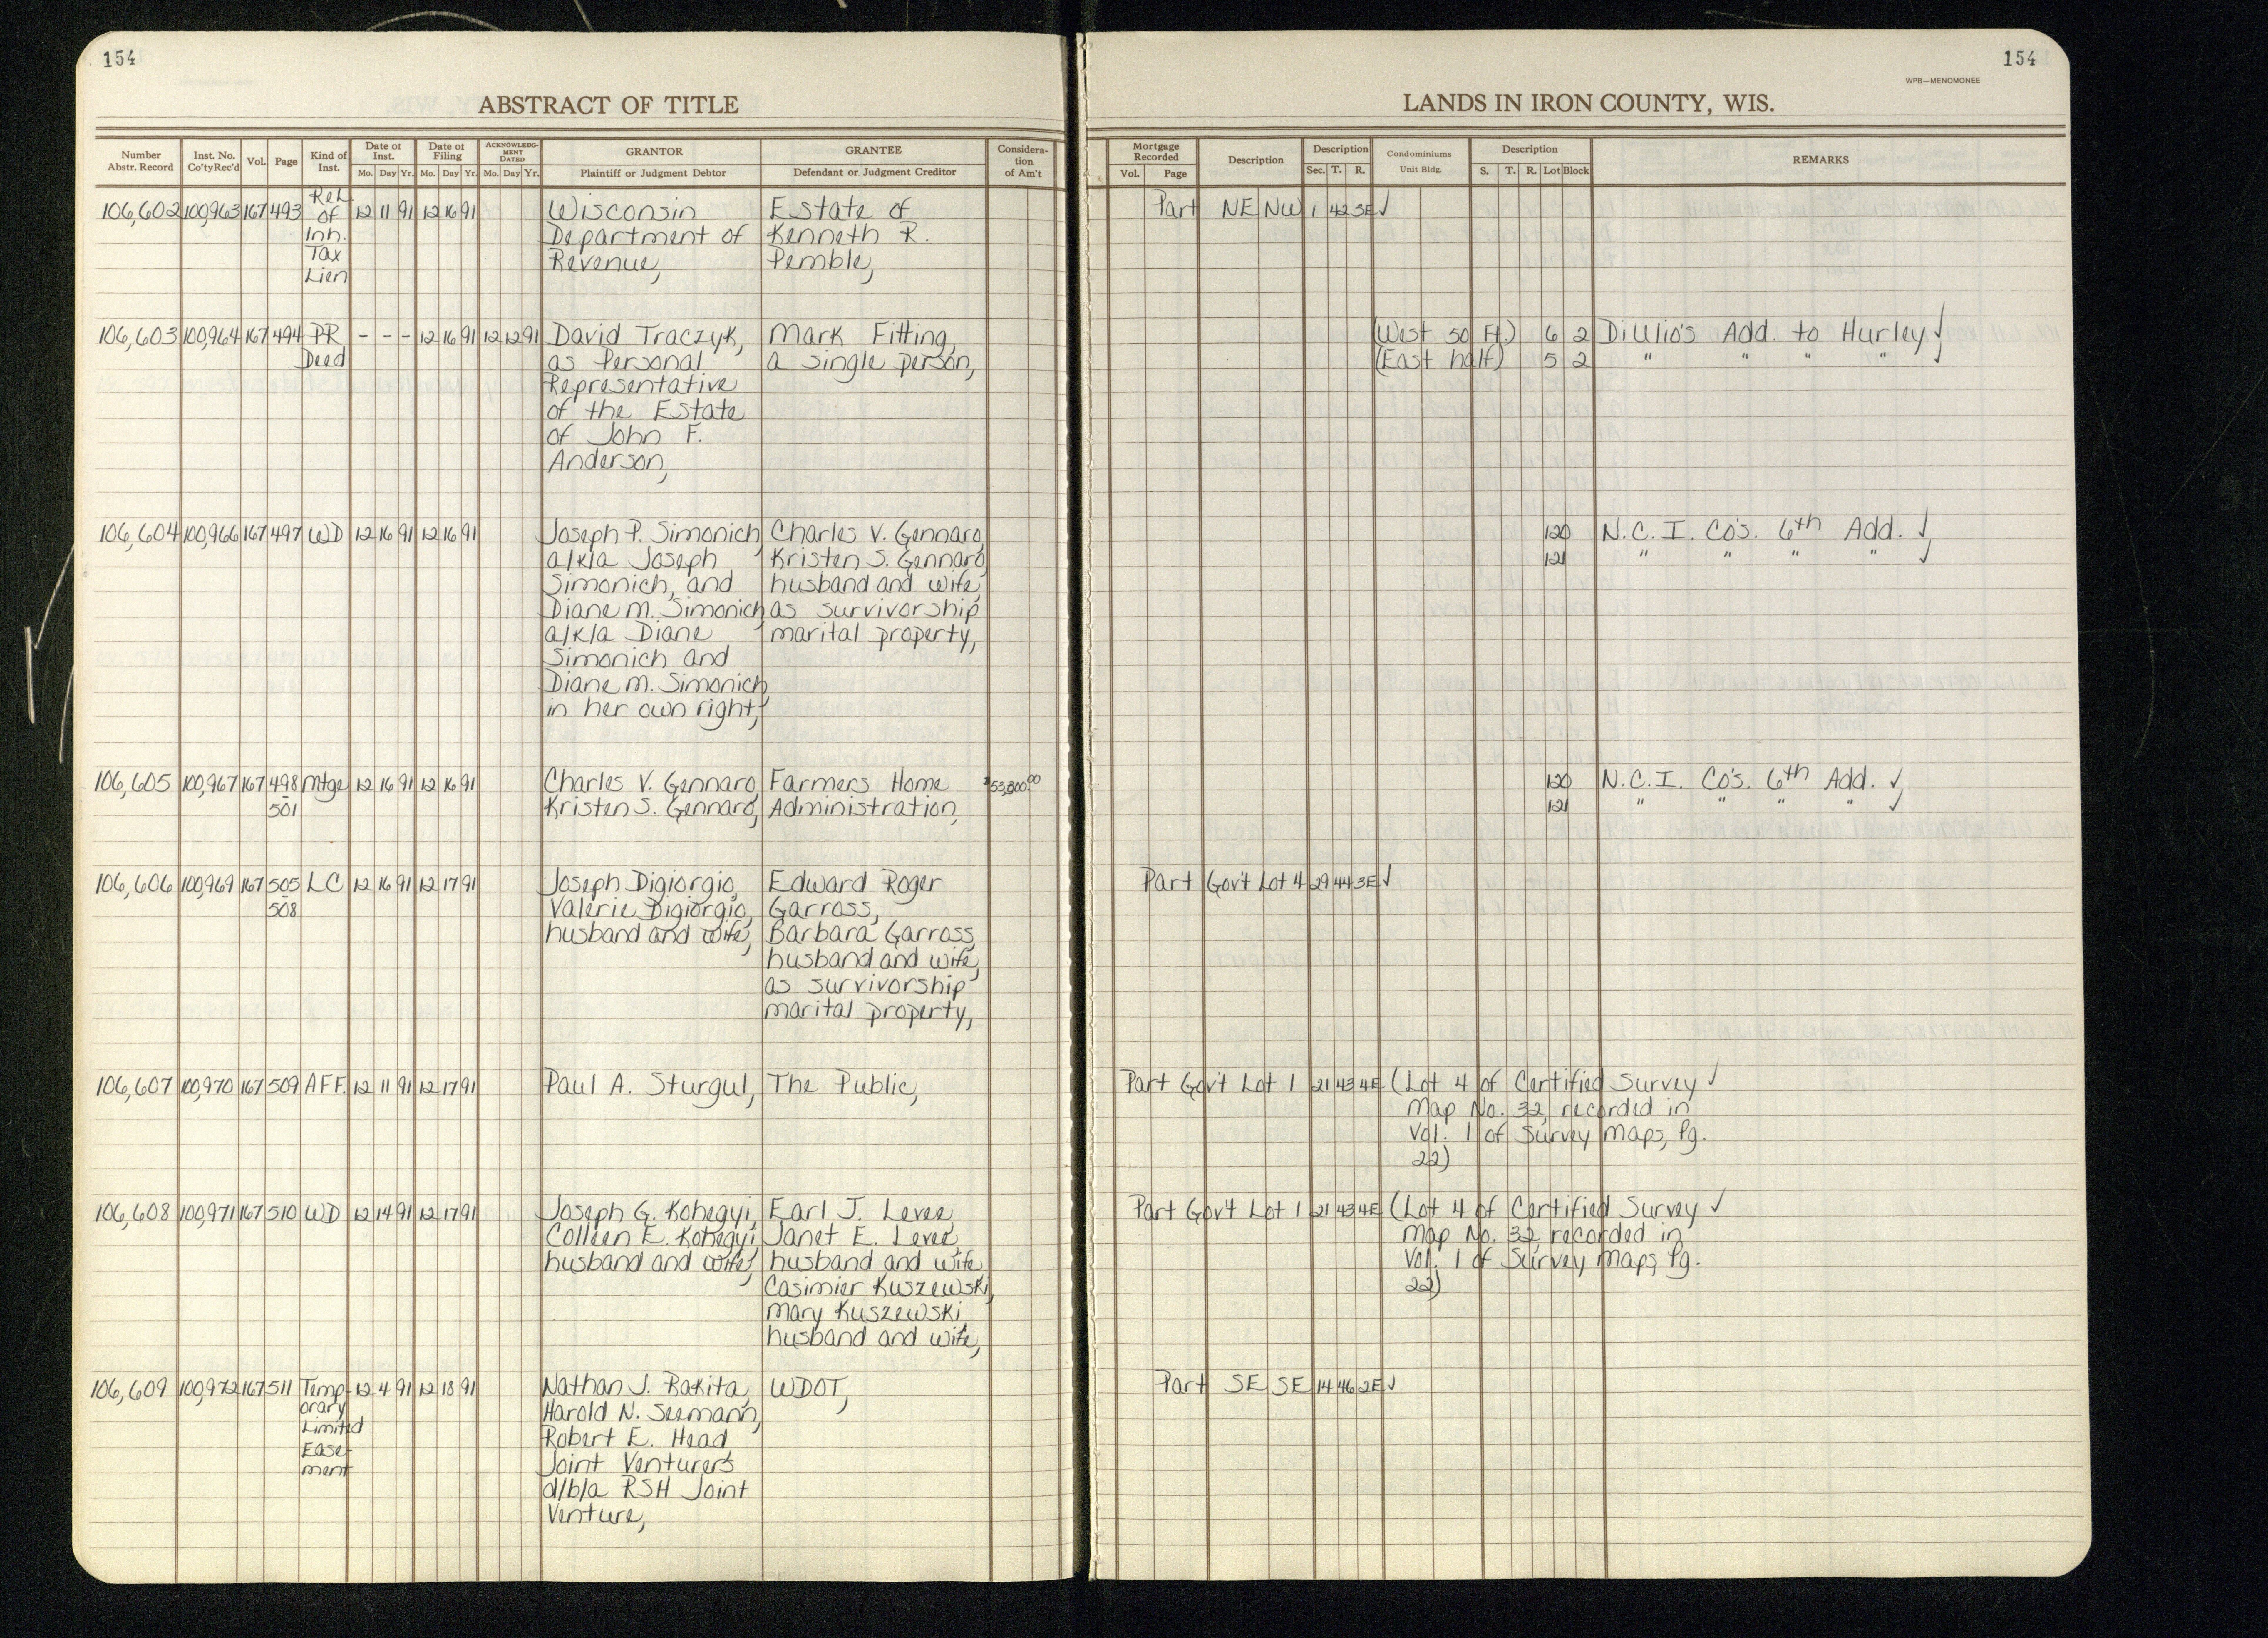 154
ABSTRACT OF TITLE
Number Abstr. Record | Inst. No. Co'tyRec'd | Vol. | Page | Kind of Inst. | Date of Inst. Mo. Day Yr. | Date of Filing Mo. Day Yr. | ACKNOWLEDGMENT DATED Mo. Day Yr. | GRANTOR Plaintiff or Judgment Debtor | GRANTEE Defendant or Judgment Creditor | Consideration of Am't
Rel.
106,602 100,963 167 493 of 12 11 91 12 16 91 Wisconsin Estate of
Inh. Department of Kenneth R.
Tax Revenue, Pemble,
Lien
106,603 100,964 167 494 PR - - - 12 16 91 12 12 91 David Traczyk, Mark Fitting,
Deed as Personal a single person,
Representative
of the Estate
of John F.
Anderson,
106,604 100,966 167 497 WD 12 16 91 12 16 91 Joseph P. Simonich, Charles V. Gennaro,
a/k/a Joseph Kristen S. Gennaro,
Simonich, and husband and wife,
Diane M. Simonich, as survivorship
a/k/a Diane marital property,
Simonich and
Diane M. Simonich
in her own right,
106,605 100,967 167 498 Mtge 12 16 91 12 16 91 Charles V. Gennaro, Farmers Home $53,800.00
- 501 Kristen S. Gennaro, Administration,
106,606 100,969 167 505 LC 12 16 91 12 17 91 Joseph Digiorgio, Edward Roger
- 508 Valerie Digiorgio, Garross,
husband and wife, Barbara Garross,
husband and wife,
as survivorship
marital property,
106,607 100,970 167 509 AFF. 12 11 91 12 17 91 Paul A. Sturgul, The Public,
106,608 100,971 167 510 WD 12 14 91 12 17 91 Joseph G. Kohegyi, Earl J. Levee,
Colleen E. Kohegyi, Janet E. Levee,
husband and wife, husband and wife,
Casimier Kuszewski,
Mary Kuszewski,
husband and wife,
106,609 100,972 167 511 Temp- 12 4 91 12 18 91 Nathan J. Rakita, WDOT,
orary Harold N. Seemann,
Limited Robert E. Head,
Ease- Joint Venturers
ment d/b/a RSH Joint
Venture,
154
WPB—MENOMONEE
LANDS IN IRON COUNTY, WIS.
Mortgage Recorded Vol. Page | Description | Description Sec. T. R. | Condominiums Unit Bldg. | Description S. T. R. Lot Block | REMARKS
Part NE NW 1 42 3E ✓
(West 50 Ft.) 6 2 DiUlio's Add. to Hurley ✓
(East half) 5 2 " " " " ✓
120 N.C.I. Co's. 6th Add. ✓
121 " " " " ✓
120 N.C.I. Co's. 6th Add. ✓
121 " " " " ✓
Part Gov't Lot 4 29 44 3E ✓
Part Gov't Lot 1 21 43 4E (Lot 4 of Certified Survey ✓
Map No. 32, recorded in
Vol. 1 of Survey Maps, Pg.
22)
Part Gov't Lot 1 21 43 4E (Lot 4 of Certified Survey ✓
Map No. 32, recorded in
Vol. 1 of Survey Maps, Pg.
22)
Part SE SE 14 46 2E ✓